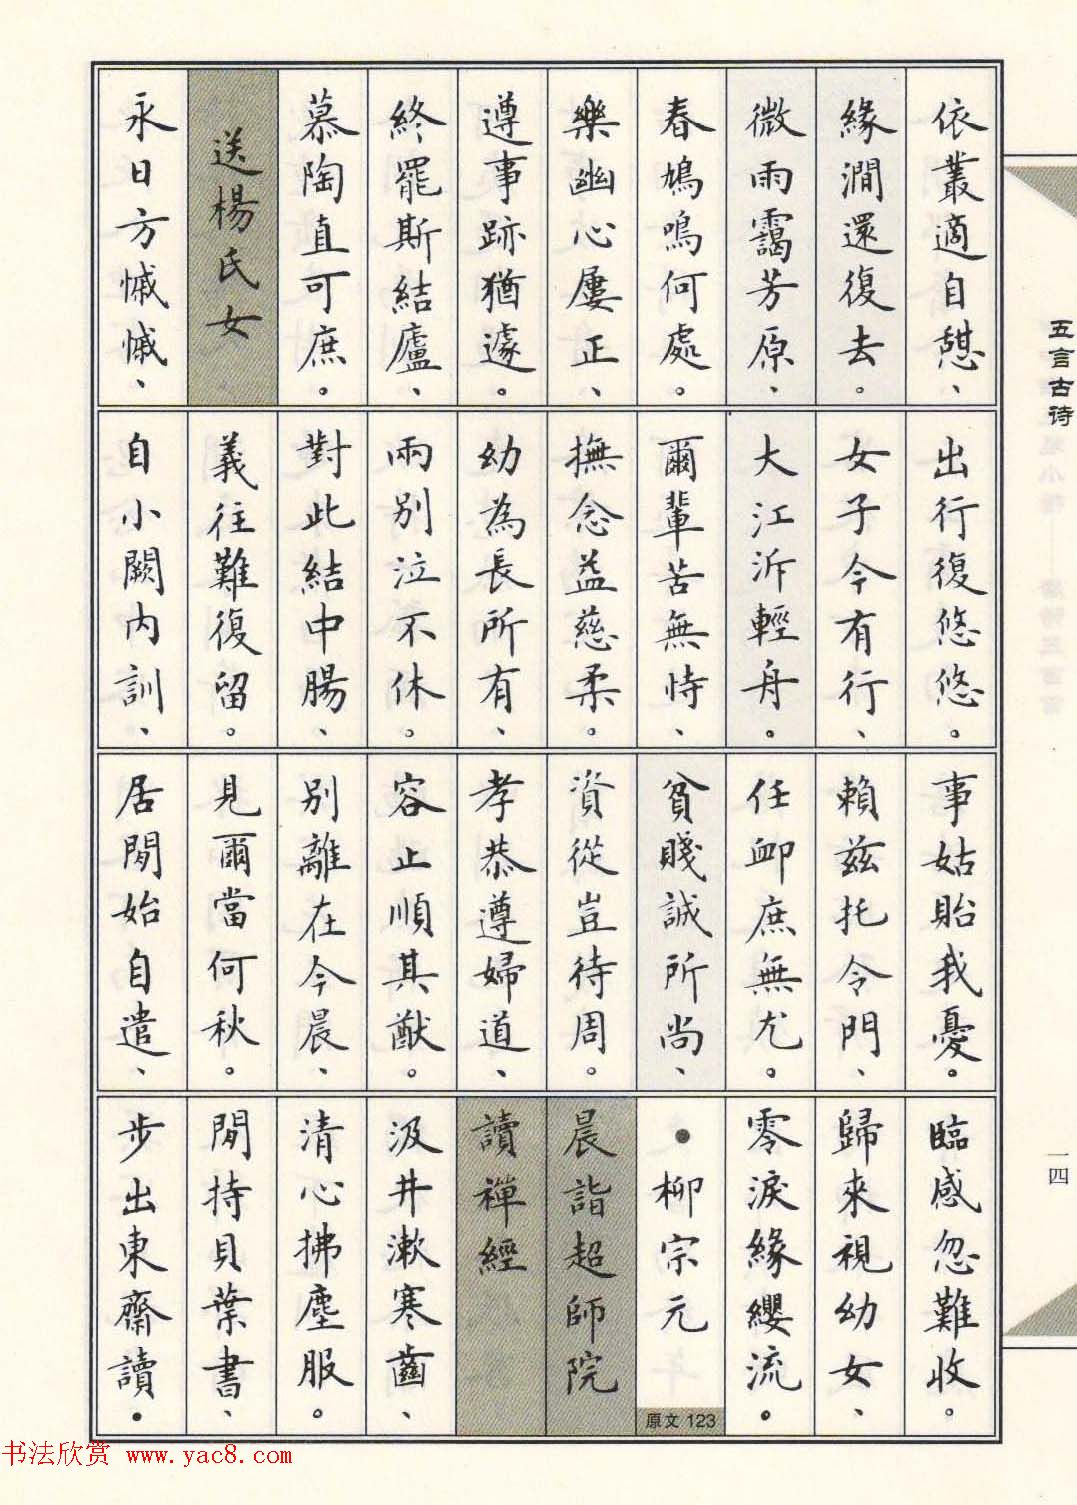 依叢適自憇、
緣澗還復去。
微雨靄芳原、
春鳩鳴何處。
樂幽心屢正、
遵事跡猶遽。
終罷斯結廬、
慕陶直可庶。
送楊氏女
永日方慽慽、
出行復悠悠。
女子今有行、
大江泝輕舟。
爾輩苦無恃、
撫念益慈柔。
幼為長所有、
兩別泣不休。
對此結中腸、
義往難復留。
自小闕內訓、
事姑貽我憂。
賴兹托令門、
任卹庶無尤。
貧賤誠所尚、
資從豈待周。
孝恭遵婦道、
容止順其猷。
別離在今晨、
見爾當何秋。
居閒始自遣、
臨感忽難收。
歸來視幼女、
零淚緣纓流。
•柳宗元
原文 123
晨詣超師院
讀禪經
汲井漱寒齒、
清心拂塵服。
閒持貝葉書、
步出東齋讀。
五言古诗
一四
书法欣赏 www.yac8.com